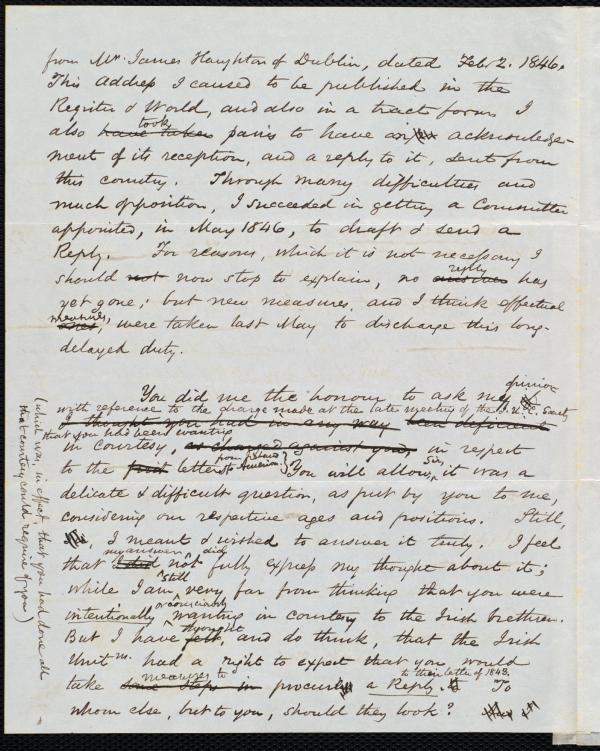 from Mr. James Haughton of Dublin, dated Feb. 2. 1846.
This Address I caused to be published in the
Register & World, and also in a tract form. I
also have taken took pains to have an acknowledge-
ment of its reception, and a reply to it, sent from
this country. Through many difficulties and
much opposition, I succeeded in getting a Committee
appointed, in May 1846, to draft & send a
Reply. For reasons, which it is not necessary I
should not now stop to explain, no answer reply has
yet gone; but new measures, and I think effectual
ones, measures, were taken last May to discharge this long-
delayed duty.
You did me the honour to ask my opinion
with reference to the charge made at the late meeting of the
I thought you had in any way been deficient
that you had been wanting
in courtesy, as charged against you, in respect
to the first letter from Ireland to America. You will allow, Sir, it was a
delicate & difficult question, as put by you to me,
considering our respective ages and positions. Still,
I meant & wished to answer it truly. I feel
that I did my answer did not fully express my thought about it;
while I am still very far from thinking that you were
intentionally or consciously wanting in courtesy to the Irish brethren.
But I have felt, thought and do think, that the Irish
Unitns. had a right to expect that you would
take some steps in measures to procure a Reply to their letter of 1843. To
whom else, but to you, should they look?
(which was, in effect, that you had done all
that courtesy could require of you)